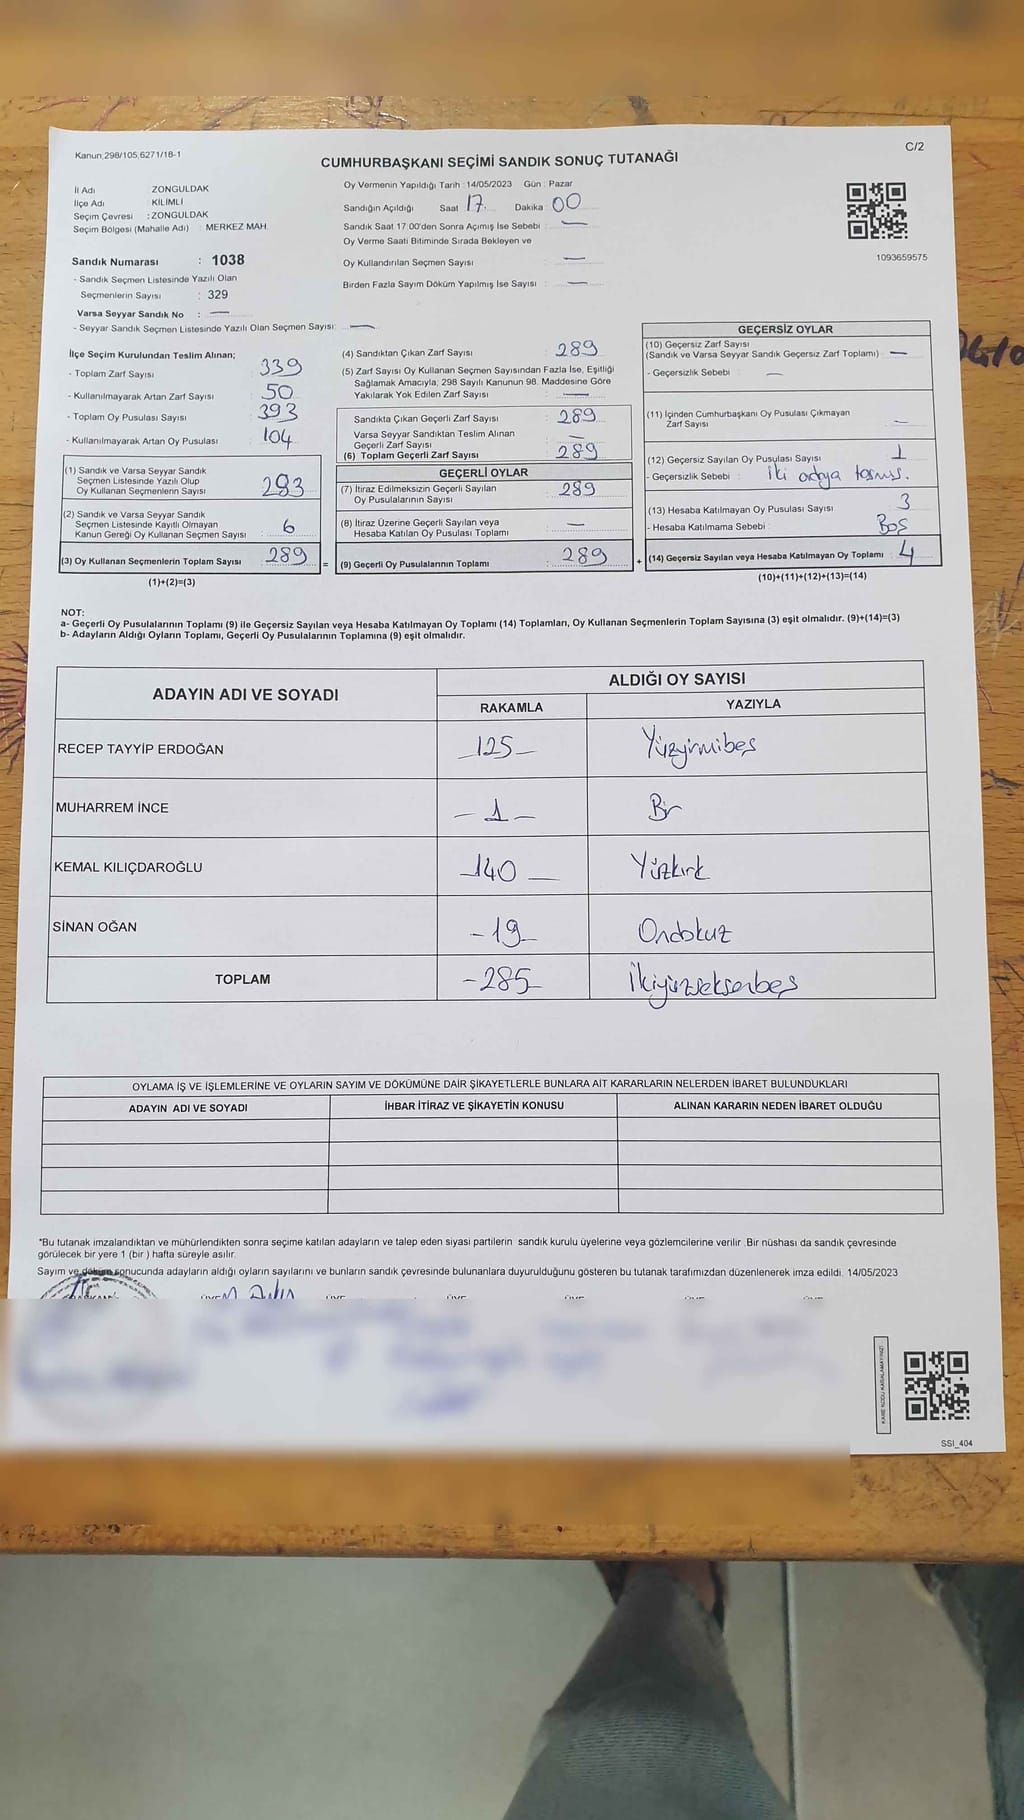 Kanun;298/105,6271/18-1
C/2
CUMHURBAŞKANI SEÇİMİ SANDIK SONUÇ TUTANAĞI
İl Adı : ZONGULDAK
İlçe Adı : KİLİMLİ
Seçim Çevresi : ZONGULDAK
Seçim Bölgesi (Mahalle Adı) : MERKEZ MAH.
Sandık Numarası : 1038
- Sandık Seçmen Listesinde Yazılı Olan
Seçmenlerin Sayısı : 329
Varsa Seyyar Sandık No : —
- Seyyar Sandık Seçmen Listesinde Yazılı Olan Seçmen Sayısı: —
Oy Vermenin Yapıldığı Tarih : 14/05/2023 Gün : Pazar
Sandığın Açıldığı Saat 17 Dakika 00
Sandık Saat 17.00'den Sonra Açımış İse Sebebi : —
Oy Verme Saati Bitiminde Sırada Bekleyen ve
Oy Kullandırılan Seçmen Sayısı : —
Birden Fazla Sayım Döküm Yapılmış İse Sayısı : —
1093659575
İlçe Seçim Kurulundan Teslim Alınan;
- Toplam Zarf Sayısı : 339
- Kullanılmayarak Artan Zarf Sayısı : 50
- Toplam Oy Pusulası Sayısı : 393
- Kullanılmayarak Artan Oy Pusulası : 104
(1) Sandık ve Varsa Seyyar Sandık
Seçmen Listesinde Yazılı Olup
Oy Kullanan Seçmenlerin Sayısı : 283
(2) Sandık ve Varsa Seyyar Sandık
Seçmen Listesinde Kayıtlı Olmayan
Kanun Gereği Oy Kullanan Seçmen Sayısı : 6
(3) Oy Kullanan Seçmenlerin Toplam Sayısı : 289
(1)+(2)=(3)
(4) Sandıktan Çıkan Zarf Sayısı : 289
(5) Zarf Sayısı Oy Kullanan Seçmen Sayısından Fazla İse, Eşitliği
Sağlamak Amacıyla, 298 Sayılı Kanunun 98. Maddesine Göre
Yakılarak Yok Edilen Zarf Sayısı : —
Sandıkta Çıkan Geçerli Zarf Sayısı : 289
Varsa Seyyar Sandıktan Teslim Alınan
Geçerli Zarf Sayısı : —
(6) Toplam Geçerli Zarf Sayısı : 289
GEÇERLİ OYLAR
(7) İtiraz Edilmeksizin Geçerli Sayılan
Oy Pusulalarının Sayısı : 289
(8) İtiraz Üzerine Geçerli Sayılan veya
Hesaba Katılan Oy Pusulası Toplamı : —
= (9) Geçerli Oy Pusulalarının Toplamı : 289
GEÇERSİZ OYLAR
(10) Geçersiz Zarf Sayısı
(Sandık ve Varsa Seyyar Sandık Geçersiz Zarf Toplamı) : —
- Geçersizlik Sebebi : —
(11) İçinden Cumhurbaşkanı Oy Pusulası Çıkmayan
Zarf Sayısı : —
(12) Geçersiz Sayılan Oy Pusulası Sayısı : 1
- Geçersizlik Sebebi : İki adaya taşmış.
(13) Hesaba Katılmayan Oy Pusulası Sayısı : 3
- Hesaba Katılmama Sebebi : Boş
+ (14) Geçersiz Sayılan veya Hesaba Katılmayan Oy Toplamı : 4
(10)+(11)+(12)+(13)=(14)
NOT:
a- Geçerli Oy Pusulalarının Toplamı (9) ile Geçersiz Sayılan veya Hesaba Katılmayan Oy Toplamı (14) Toplamları, Oy Kullanan Seçmenlerin Toplam Sayısına (3) eşit olmalıdır. (9)+(14)=(3)
b- Adayların Aldığı Oyların Toplamı, Geçerli Oy Pusulalarının Toplamına (9) eşit olmalıdır.
ADAYIN ADI VE SOYADI
ALDIĞI OY SAYISI
RAKAMLA YAZIYLA
RECEP TAYYİP ERDOĞAN -125- Yüzyirmibeş
MUHARREM İNCE -1- Bir
KEMAL KILIÇDAROĞLU -140- Yüzkırk
SİNAN OĞAN -19- Ondokuz
TOPLAM -285- İkiyüzseksenbeş
OYLAMA İŞ VE İŞLEMLERİNE VE OYLARIN SAYIM VE DÖKÜMÜNE DAİR ŞİKAYETLERLE BUNLARA AİT KARARLARIN NELERDEN İBARET BULUNDUKLARI
ADAYIN ADI VE SOYADI İHBAR İTİRAZ VE ŞİKAYETİN KONUSU ALINAN KARARIN NEDEN İBARET OLDUĞU
*Bu tutanak imzalandıktan ve mühürlendikten sonra seçime katılan adayların ve talep eden siyasi partilerin sandık kurulu üyelerine veya gözlemcilerine verilir. Bir nüshası da sandık çevresinde
görülecek bir yere 1 (bir ) hafta süreyle asılır.
Sayım ve döküm sonucunda adayların aldığı oyların sayılarını ve bunların sandık çevresinde bulunanlara duyurulduğunu gösteren bu tutanak tarafımızdan düzenlenerek imza edildi. 14/05/2023
SSI_404